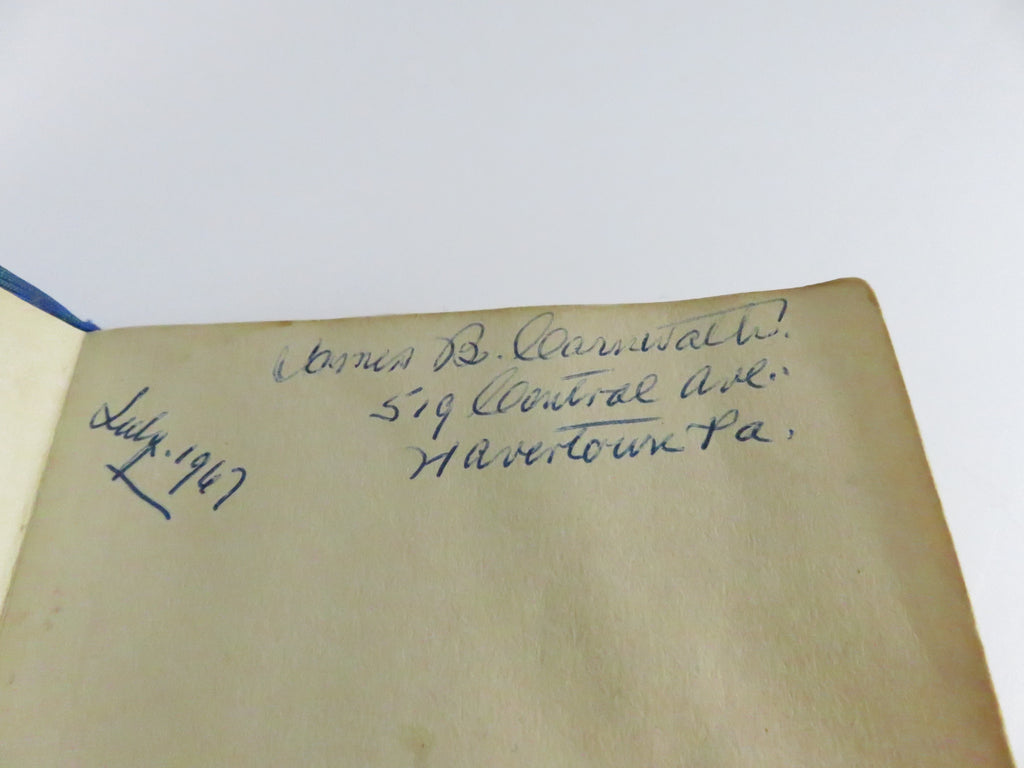 James B. Carnwath.
519 Central Ave..
Havertown Pa.
July. 1967